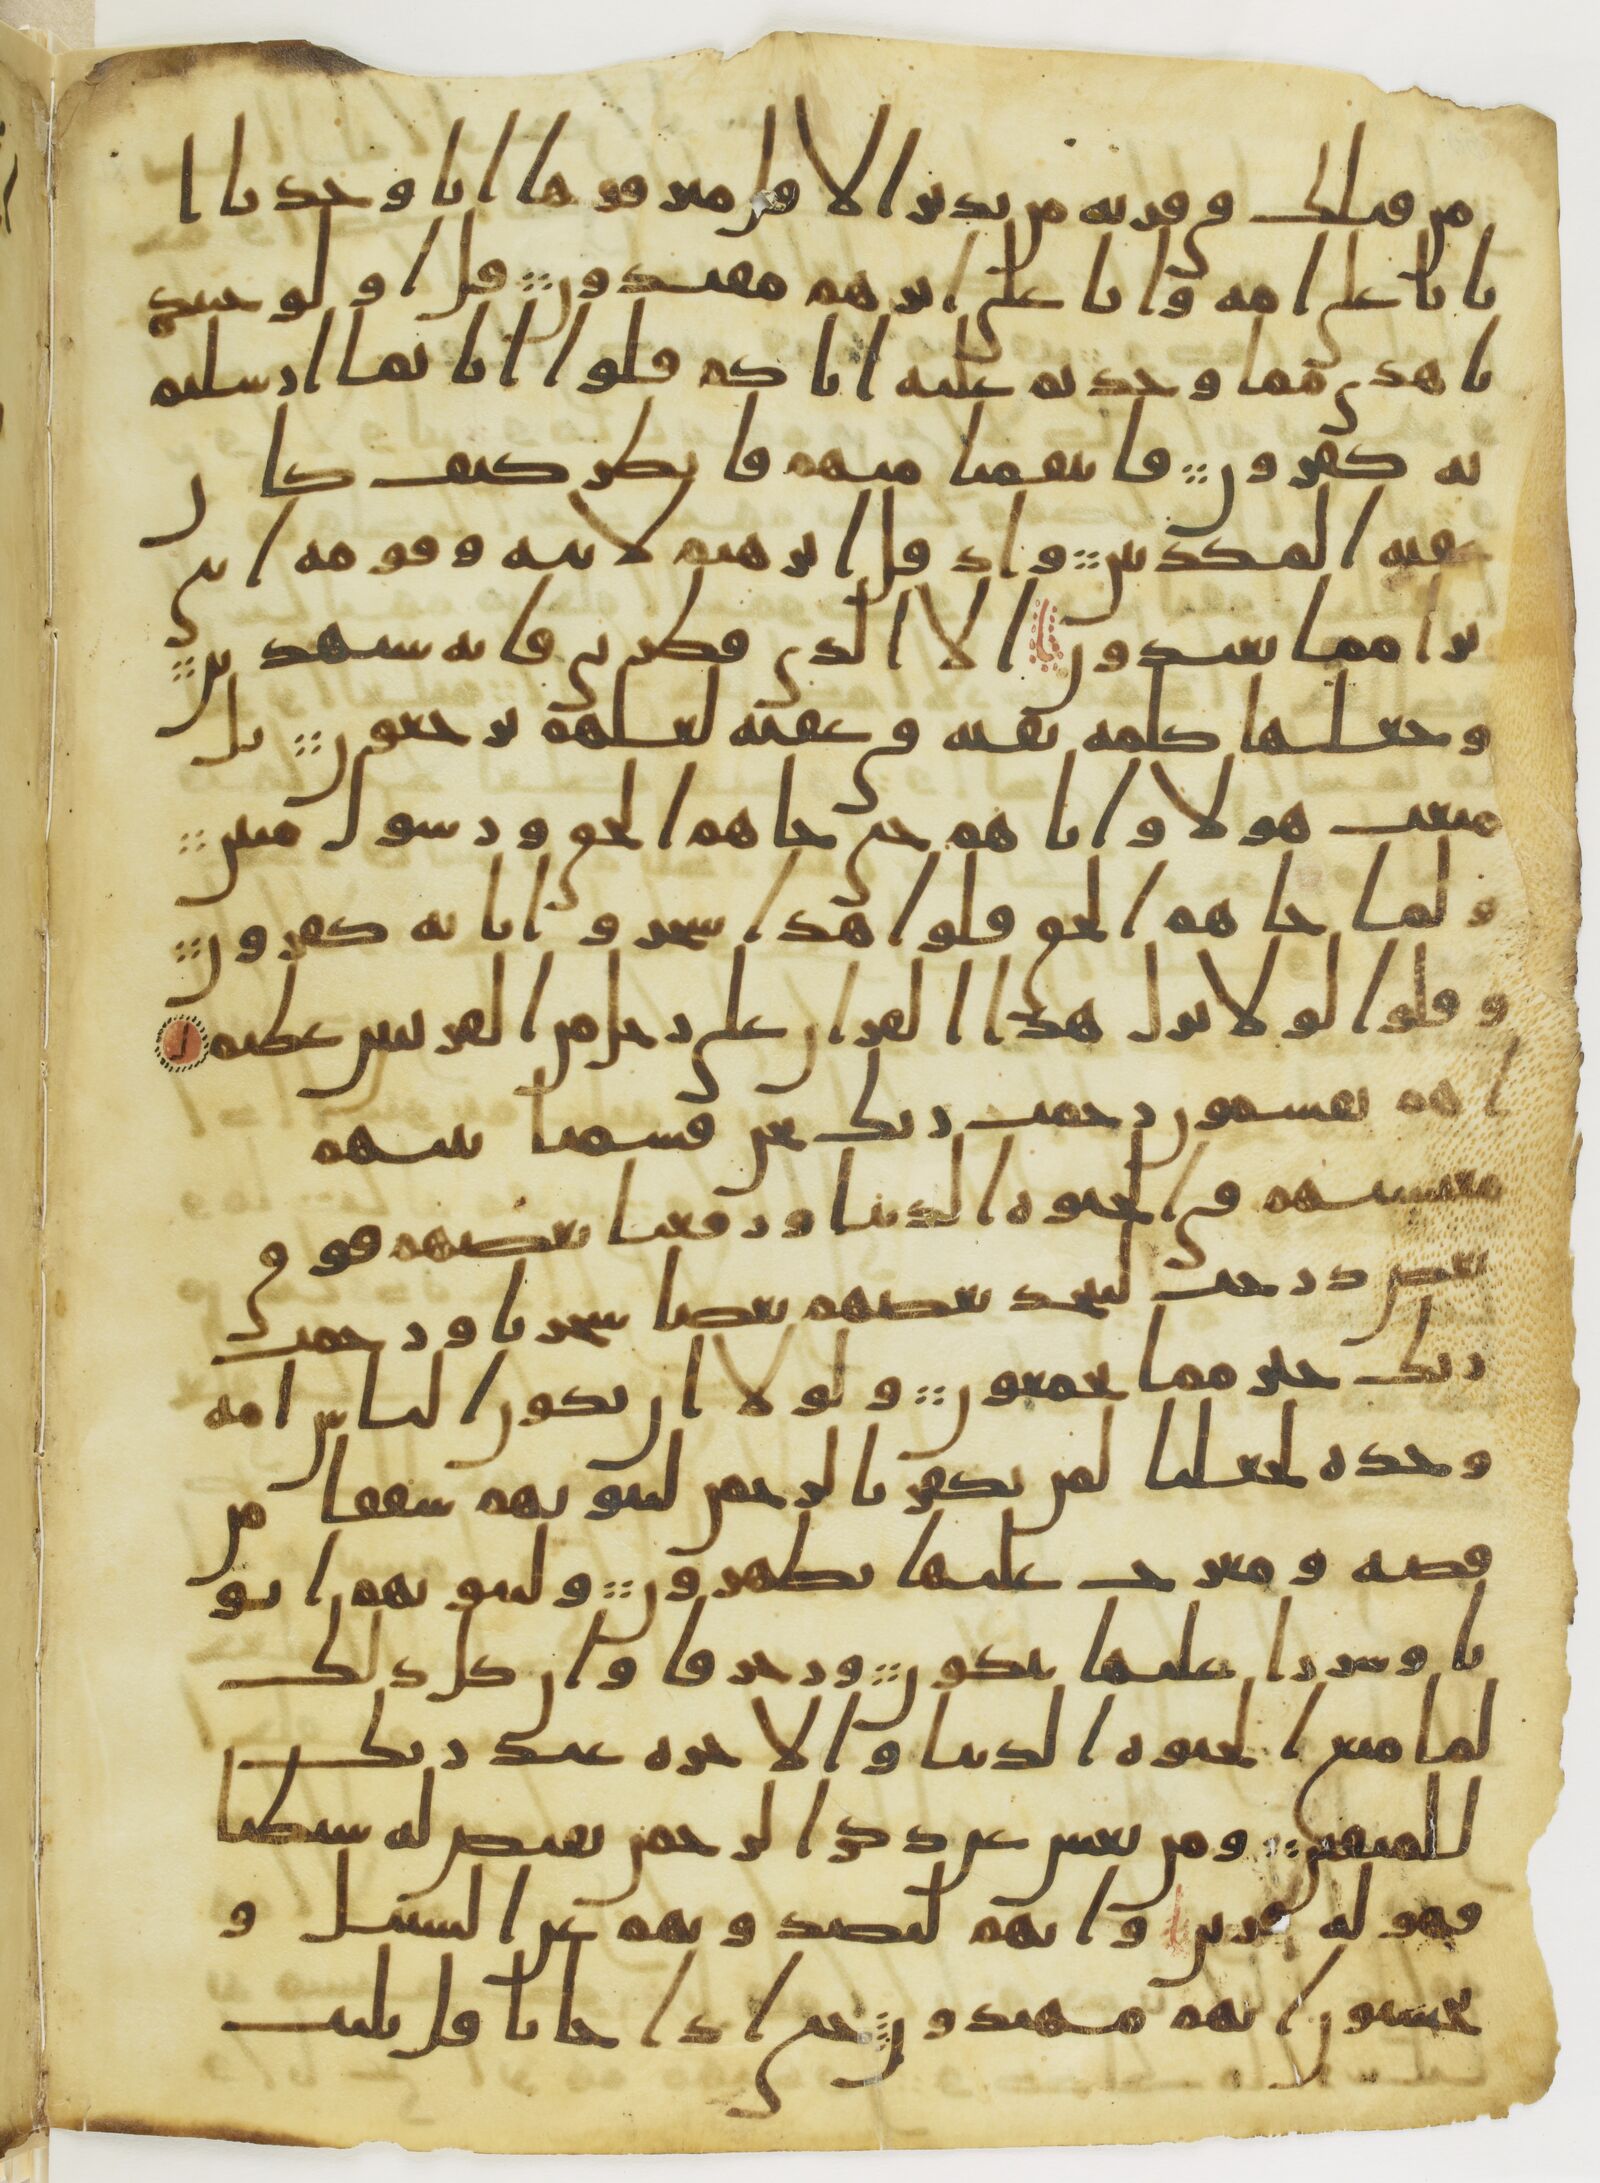 من قبلك في قريه من نذير الا قل مترفوها انا وجدنا ا
بانا على امه وانا على اثرهم مقتدون قل اولو جيتكم
باهدى مما وجدتم عليه اباكم قلوا انا بما ارسلتم
به كفرون فانتقمنا منهم فانظر كيف كان
عقبه المكذبين واذ قل ابرهيم لابيه وقومه انني
برا مما تعبدون الا الذي فطرني فانه سيهدين
وجعلها كلمه بقيه في عقبه لعلهم يرجعون بل
متعت هولا واباهم حتى جاهم الحق ورسول مبين
ولما جاهم الحق قلوا هذا سحر وانا به كفرون
وقلوا لولا نزل هذا القران على رجل من القريتين عظيم ل
اهم يقسمون رحمت ربك نحن قسمنا بينهم
معيشتهم في الحيوه الدنيا ورفعنا بعضهم فوق
بعض درجت ليتخذ بعضهم بعضا سخريا ورحمت
ربك خير مما يجمعون ولولا ان يكون الناس امه
وحده لجعلنا لمن يكفر بالرحمن لبيوتهم سقفا من
فضه ومعرج عليها يظهرون ولبيوتهم ابو
با وسررا عليها يتكون وزخرفا وان كل ذلك
لما متع الحيوه الدنيا والاخره عند ربك
للمتقين ومن يعش عن ذكر الرحمن نقيض له شيطنا
فهو له قرين وانهم ليصدونهم عن السبيل و
يحسبون انهم مهتدون حتى اذا جانا قل يليت